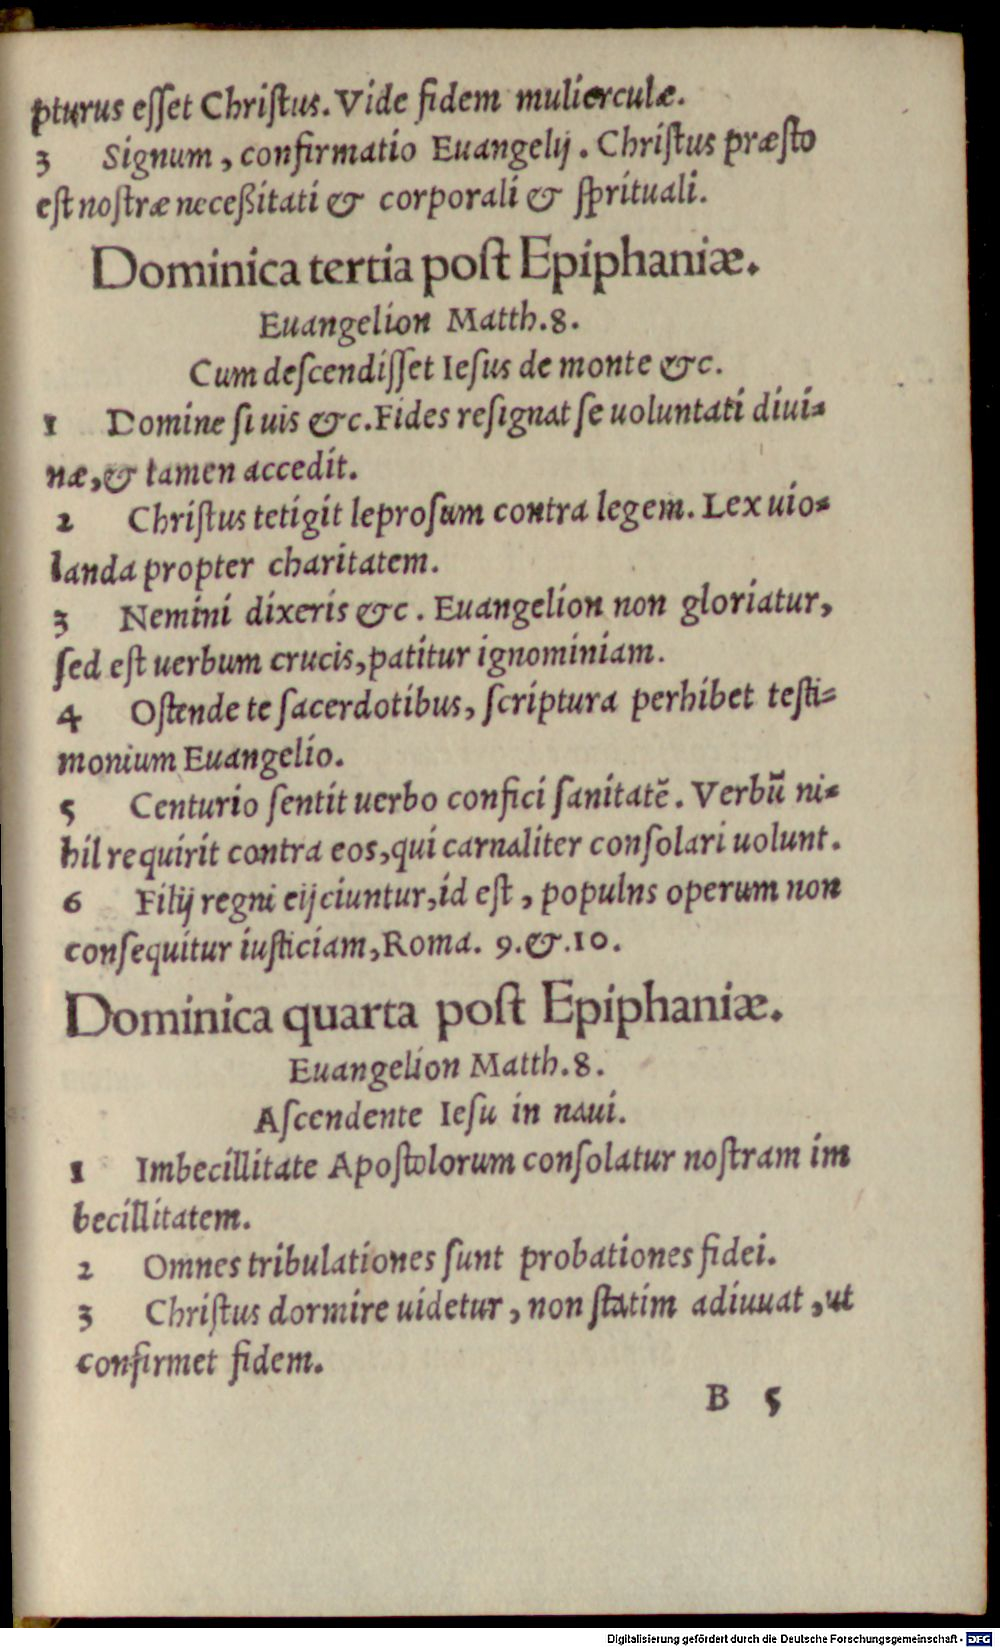 pturus eſſet Chriſtus. Vide fidem mulierculæ.
3 Signum, confirmatio Euangelij. Chriſtus præſto
eſt noſtræ neceßitati & corporali & ſprituali.
Dominica tertia poſt Epiphaniæ.
Euangelion Matth.8.
Cum deſcendiſſet Ieſus de monte &c.
1 Domine ſi uis &c. Fides reſignat ſe uoluntati diui=
næ, & tamen accedit.
2 Chriſtus tetigit leproſum contra legem. Lex uio=
landa propter charitatem.
3 Nemini dixeris &c. Euangelion non gloriatur,
ſed eſt uerbum crucis, patitur ignominiam.
4 Oſtende te ſacerdotibus, ſcriptura perhibet teſti=
monium Euangelio.
5 Centurio ſentit uerbo confici ſanitatē. Verbū ni=
hil requirit contra eos, qui carnaliter conſolari uolunt.
6 Filij regni eijciuntur, id eſt, populns operum non
conſequitur iuſticiam, Roma. 9.&.10.
Dominica quarta poſt Epiphaniæ.
Euangelion Matth.8.
Aſcendente Ieſu in naui.
1 Imbecillitate Apoſtolorum conſolatur noſtram im
becillitatem.
2 Omnes tribulationes ſunt probationes fidei.
3 Chriſtus dormire uidetur, non ſtatim adiuuat, ut
confirmet fidem.
B 5
Digitalisierung gefördert durch die Deutsche Forschungsgemeinschaft - DFG